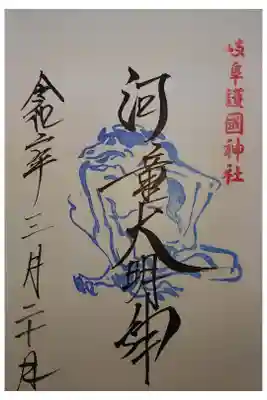 岐阜護國神社
河童大明神
令和二年三月二十日